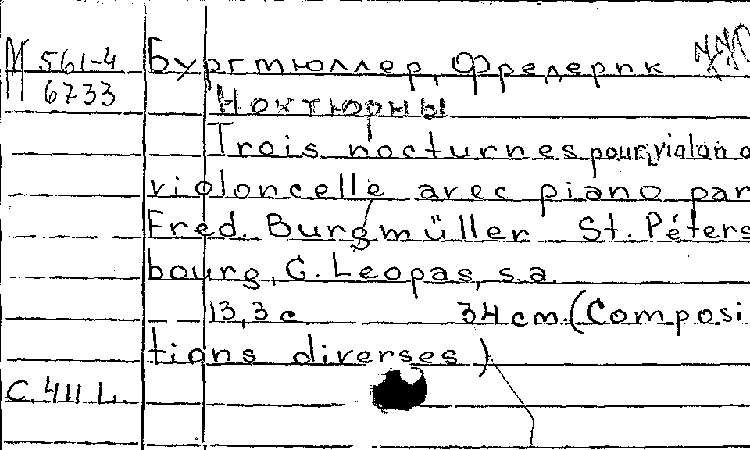 М 561-4 Бургмюллер, Фредерик
6733
Ноктюрны
Trois nocturnes pour violon o
violoncelle avec piano par
Fred. Burgmüller St. Péters
bourg, C. Leopas, s.a.
13,3 c 34 cm (Composi
tions diverses)
C. 411 L.